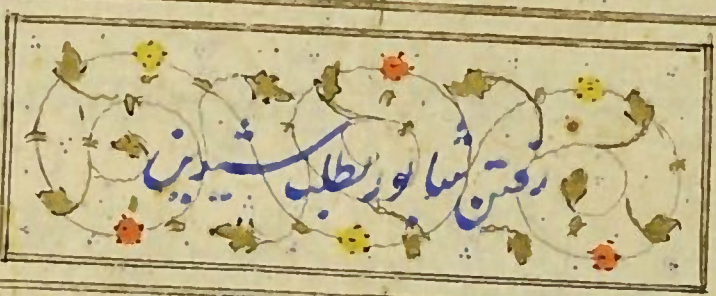 رفتن شاپور بطلب شیرین